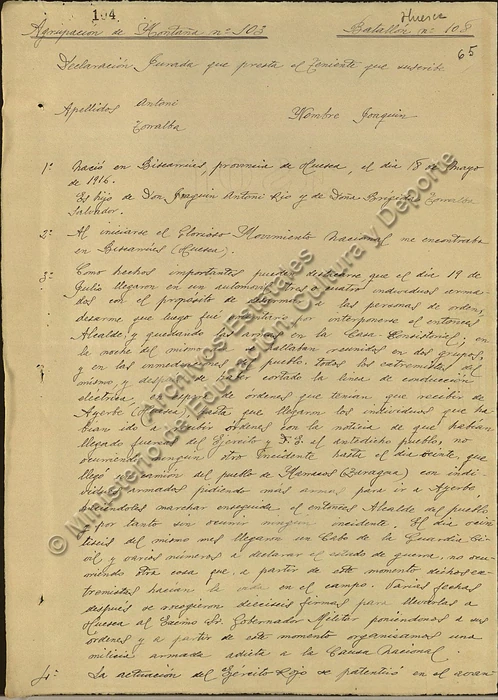 104
Huesca
Agrupacion de Montaña nº 103 Batallón nº 108
65
Declaración Jurada que presta el Teniente que suscribe
Apellidos Antoni Nombre Joaquin
Torralba
1º nació en Biscarrués, provincia de Huesca, el dia 18 de mayo
de 1916.
Es hijo de Don Joaquin Antoni Rio y de Doña Brigida Torralba
Salvador.
2º Al iniciarse el Glorioso Movimiento Nacional me encontraba
en Biscarrués (Huesca).
3º Como hechos importantes pueden que el dia 19 de
Julio llegaron en un automovil tres cuatro individuos arma-
dos con el proposito de las personas de orden,
desarme que luego fué por interponerse el entonces
Alcalde, y quedando las armas en la Casa-Consistorial; en
la noche del mismo dia se hallaban reunidos en dos grupos,
y en las inmediaciones del pueblo, todos los extremistas del
mismo y despues de haber cortado la linea de conducción
electrica, de órdenes que tenian, que recibir de
Ayerbe (Huesca) hasta que llegaron los individuos que ha-
bian ido a recibir órdenes con la noticia de que habian
llegado fuerzas del Ejército y F.E. el antedicho pueblo, no
ocurriendo ningun otro incidente hasta el dia veinte, que
llegó camión del pueblo de (Zaragoza) con indi-
viduos armados pidiendo más armas para ir a Ayerbe,
haciéndoles marchar enseguida, el entonces Alcalde del pueblo
por tanto sin ocurrir ningun incidente. El dia vein-
tiseis del mismo mes llegaron un Cabo de la Guardia Ci-
vil y varios números a declarar el estado de guerra, no ocu-
rriendo otra cosa que, a partir de este momento dichos ex-
tremistas hacían la vida en el campo. Varias fechas
después se recogieron dieciseis firmas para llevarlas a
Huesca al Excmo Sr. Gobernador Militar poniéndonos a sus
órdenes y a partir de este momento organizamos una
milicia armada adicta a la Causa Nacional.
4º La actuación del Ejército Rojo se patentizó en el avan
© Ministerio de Educación, Cultura y Deporte
Archivos Estatales